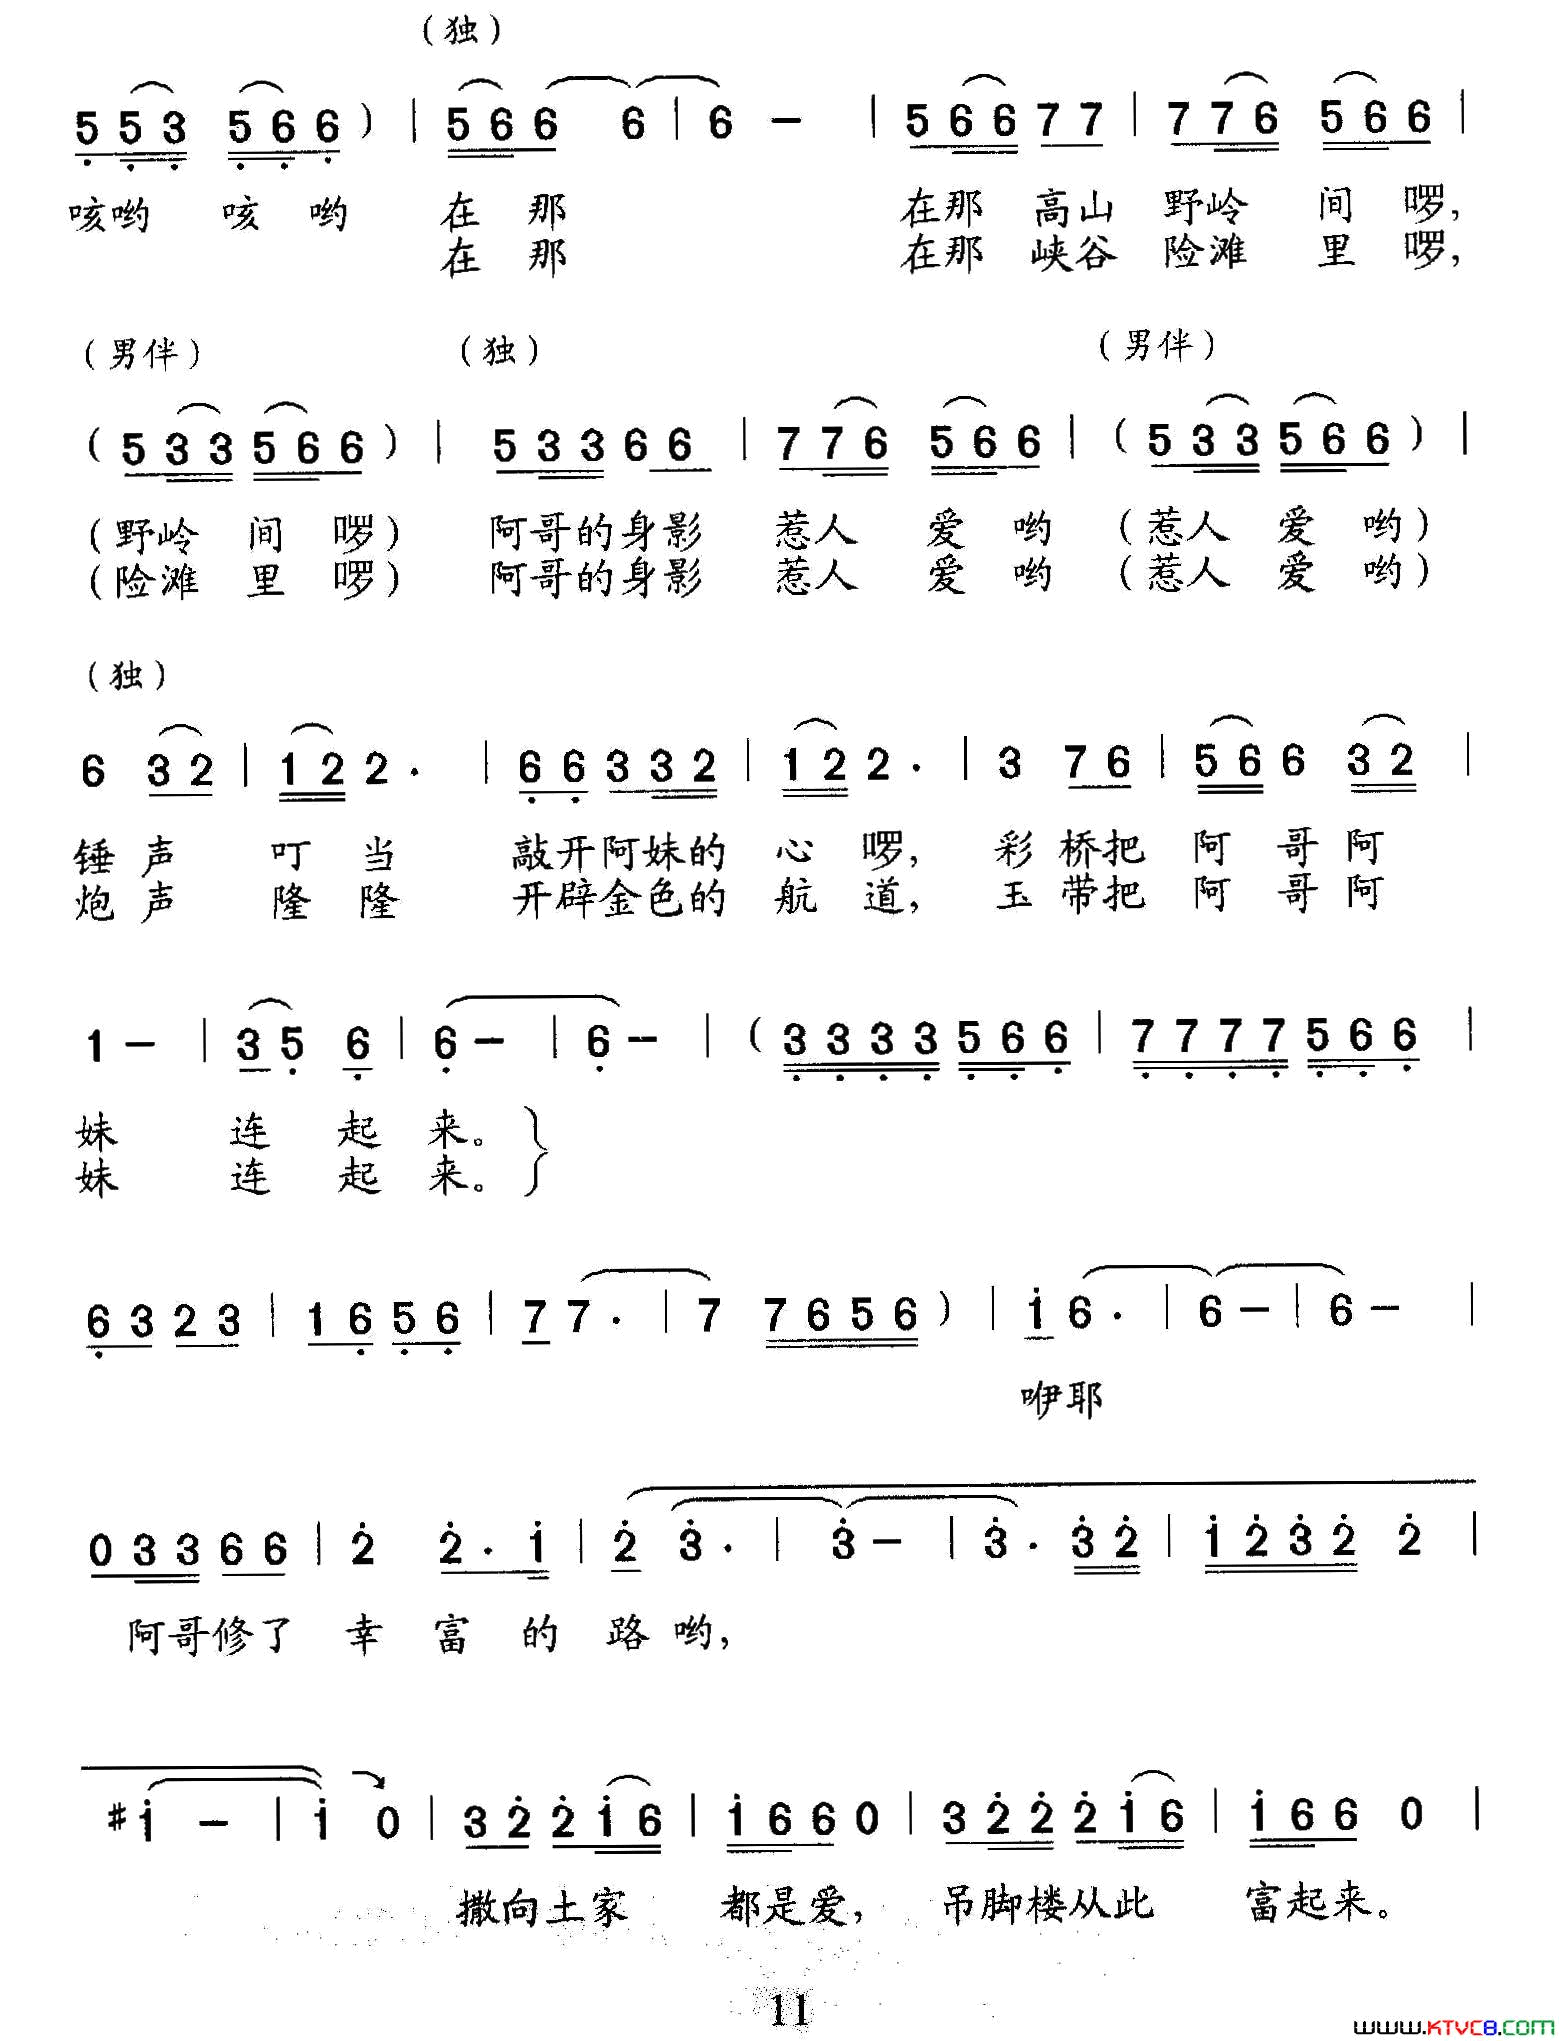 （独）
5 5 3 5 6 6 ） | 5 6 6 6 | 6 – | 5 6 6 7 7 | 7 7 6 5 6 6 |
咳哟 咳 哟 在 那 在那 高山 野岭 间 啰，
在 那 在那 峡谷 险滩 里 啰，
（男伴） （独） （男伴）
（ 5 3 3 5 6 6 ） | 5 3 3 6 6 | 7 7 6 5 6 6 | （ 5 3 3 5 6 6 ） |
（野岭 间 啰） 阿哥的身影 惹人 爱 哟 （惹人 爱 哟）
（险滩 里 啰） 阿哥的身影 惹人 爱 哟 （惹人 爱 哟）
（独）
6 3 2 | 1 2 2 . | 6 6 3 3 2 | 1 2 2 . | 3 7 6 | 5 6 6 3 2 |
锤 声 叮 当 敲开阿妹的 心 啰， 彩 桥把 阿 哥 阿
炮 声 隆 隆 开辟金色的 航 道， 玉 带把 阿 哥 阿
1 – | 3 5 6 | 6 – | 6 – | （ 3 3 3 3 5 6 6 | 7 7 7 7 5 6 6 |
妹 连 起 来。
妹 连 起 来。
6 3 2 3 | 1 6 5 6 | 7 7 . | 7 7 6 5 6 ） | 1 6 . | 6 – | 6 – |
咿耶
0 3 3 6 6 | 2 2 . 1 | 2 3 . | 3 – | 3 . 3 2 | 1 2 3 2 2 |
阿哥修了 幸 富 的 路 哟，
#1 – | 1 0 | 3 2 2 1 6 | 1 6 6 0 | 3 2 2 2 1 6 | 1 6 6 0 |
撒向土家 都是爱， 吊脚楼从此 富起来。
11
WWW.KTVC8.COM